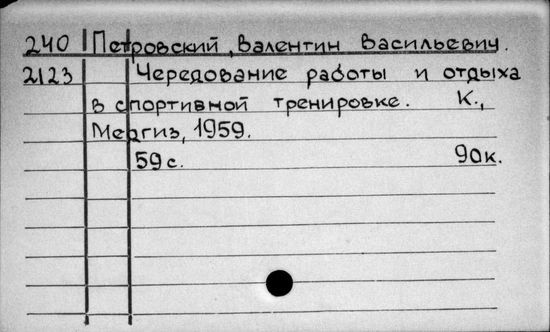 240 Петровский, Валентин Васильевич.
2123 Чередование работы и отдыха
в спортивной тренировке. К.,
Медгиз, 1959.
59с. 90к.